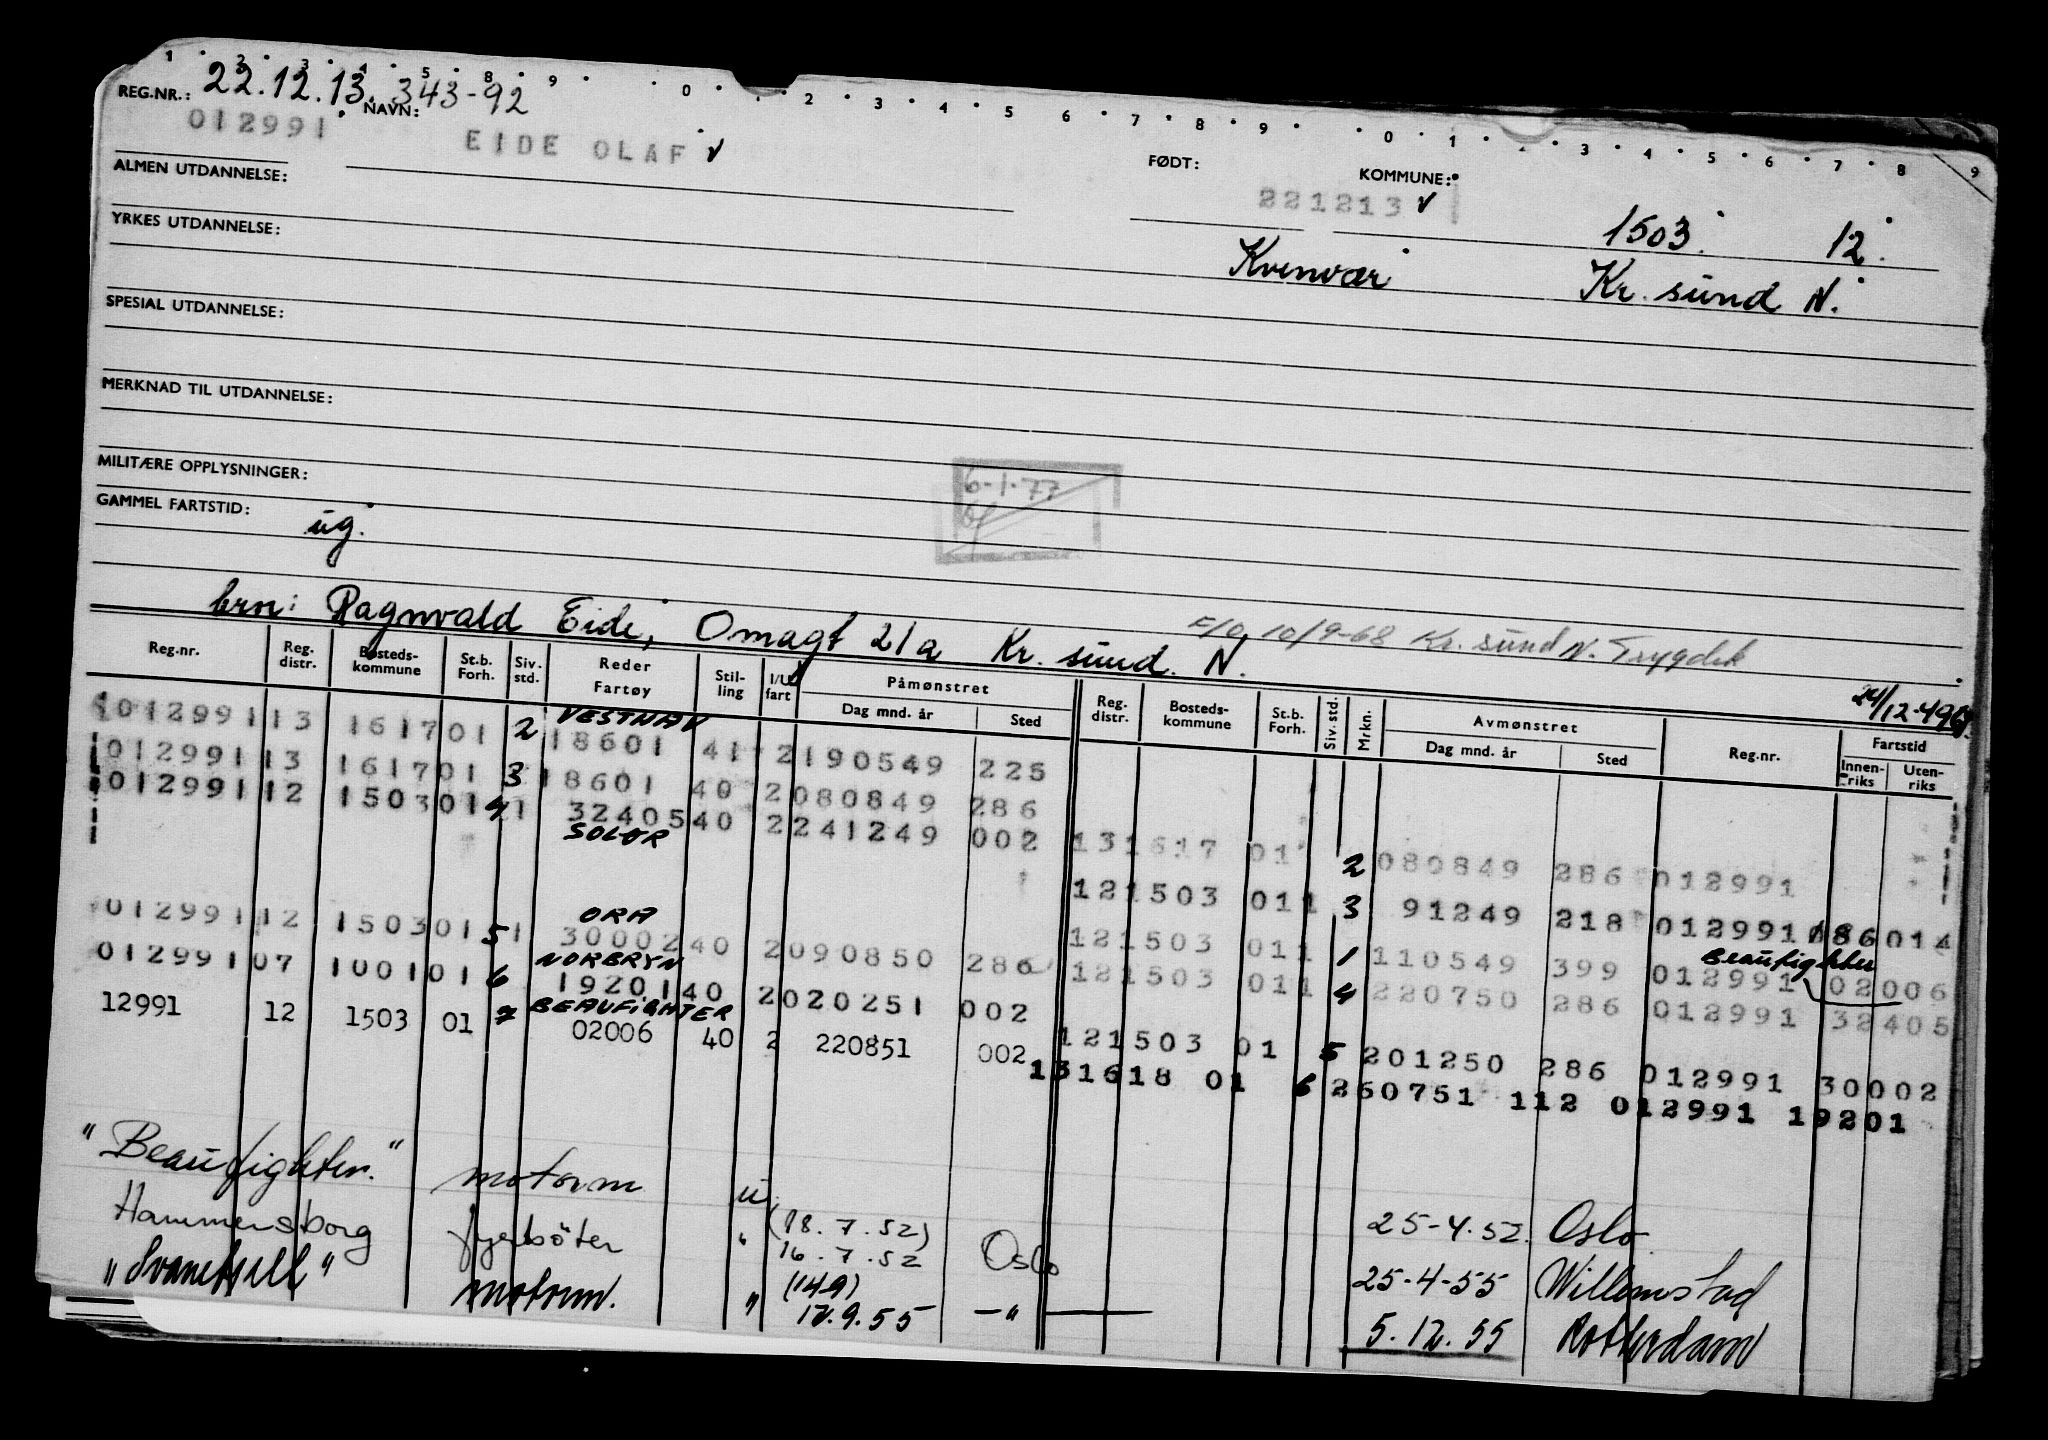 1 2 3 4 5 8 9 0 2 3 4 5 6 7 8 9 0 1 3 4 5 6 7 8 9
REG.NR.: 22.12.13. 343-92
NAVN:
012991 EIDE OLAF
FØDT: KOMMUNE:
ALMEN UTDANNELSE:
221213 1503. 12.
YRKES UTDANNELSE:
Kvenvær Kr. sund N.
SPESIAL UTDANNELSE:
MERKNAD TIL UTDANNELSE:
MILITÆRE OPPLYSNINGER:
6-1-77
GAMMEL FARTSTID: ug.
brn: Ragnvald Eide, Omagt 21a Kr. sund. N.
F/O 10/9-68 Kr. sund N. Trygdek
24/12-496
Reg.nr. Reg. distr. Bosteds-kommune St.b. Forh. Siv. std. Reder Fartøy Stil-ling I/U fart Påmønstret Dag mnd. år Sted Reg. distr. Bosteds-kommune St.b. Forh. Siv. std. Mrkn. Avmønstret Dag mnd. år Sted Reg.nr. Fartstid Innen-riks Uten-riks
VESTNAV
012991 13 1617 01 2 18601 41 2 190549 225
012991 13 1617 01 3 18601 40 2 080849 286
012991 12 1503 01 4 1 32405 40 2 241249 002
SOLØR
131617 01 2 080849 286 012991
121503 011 3 91249 218 012991 186014
ORA
012991 12 1503 01 5 1 30002 40 2 090850 286
121503 011 1 110549 399 012991 02006
Beaufighter
NORBRYN
012991 07 1001 01 6 19201 40 2 020251 002
121503 011 4 220750 286 012991 32405
BEAUFIGHTER
12991 12 1503 01 7 02006 40 2 220851 002
121503 01 5 201250 286 012991 30002
131618 01 6 260751 112 012991 19201
"Beaufighter." motorm u 25-4-52. Oslo.
Hammersborg fyrböter " (18.7.52) 16.7.52 Oslo 25-4-55 Willemstad
"Svanefjell" motorm. " (149) 17.9.55 —"— 5.12.55 Rotterdam